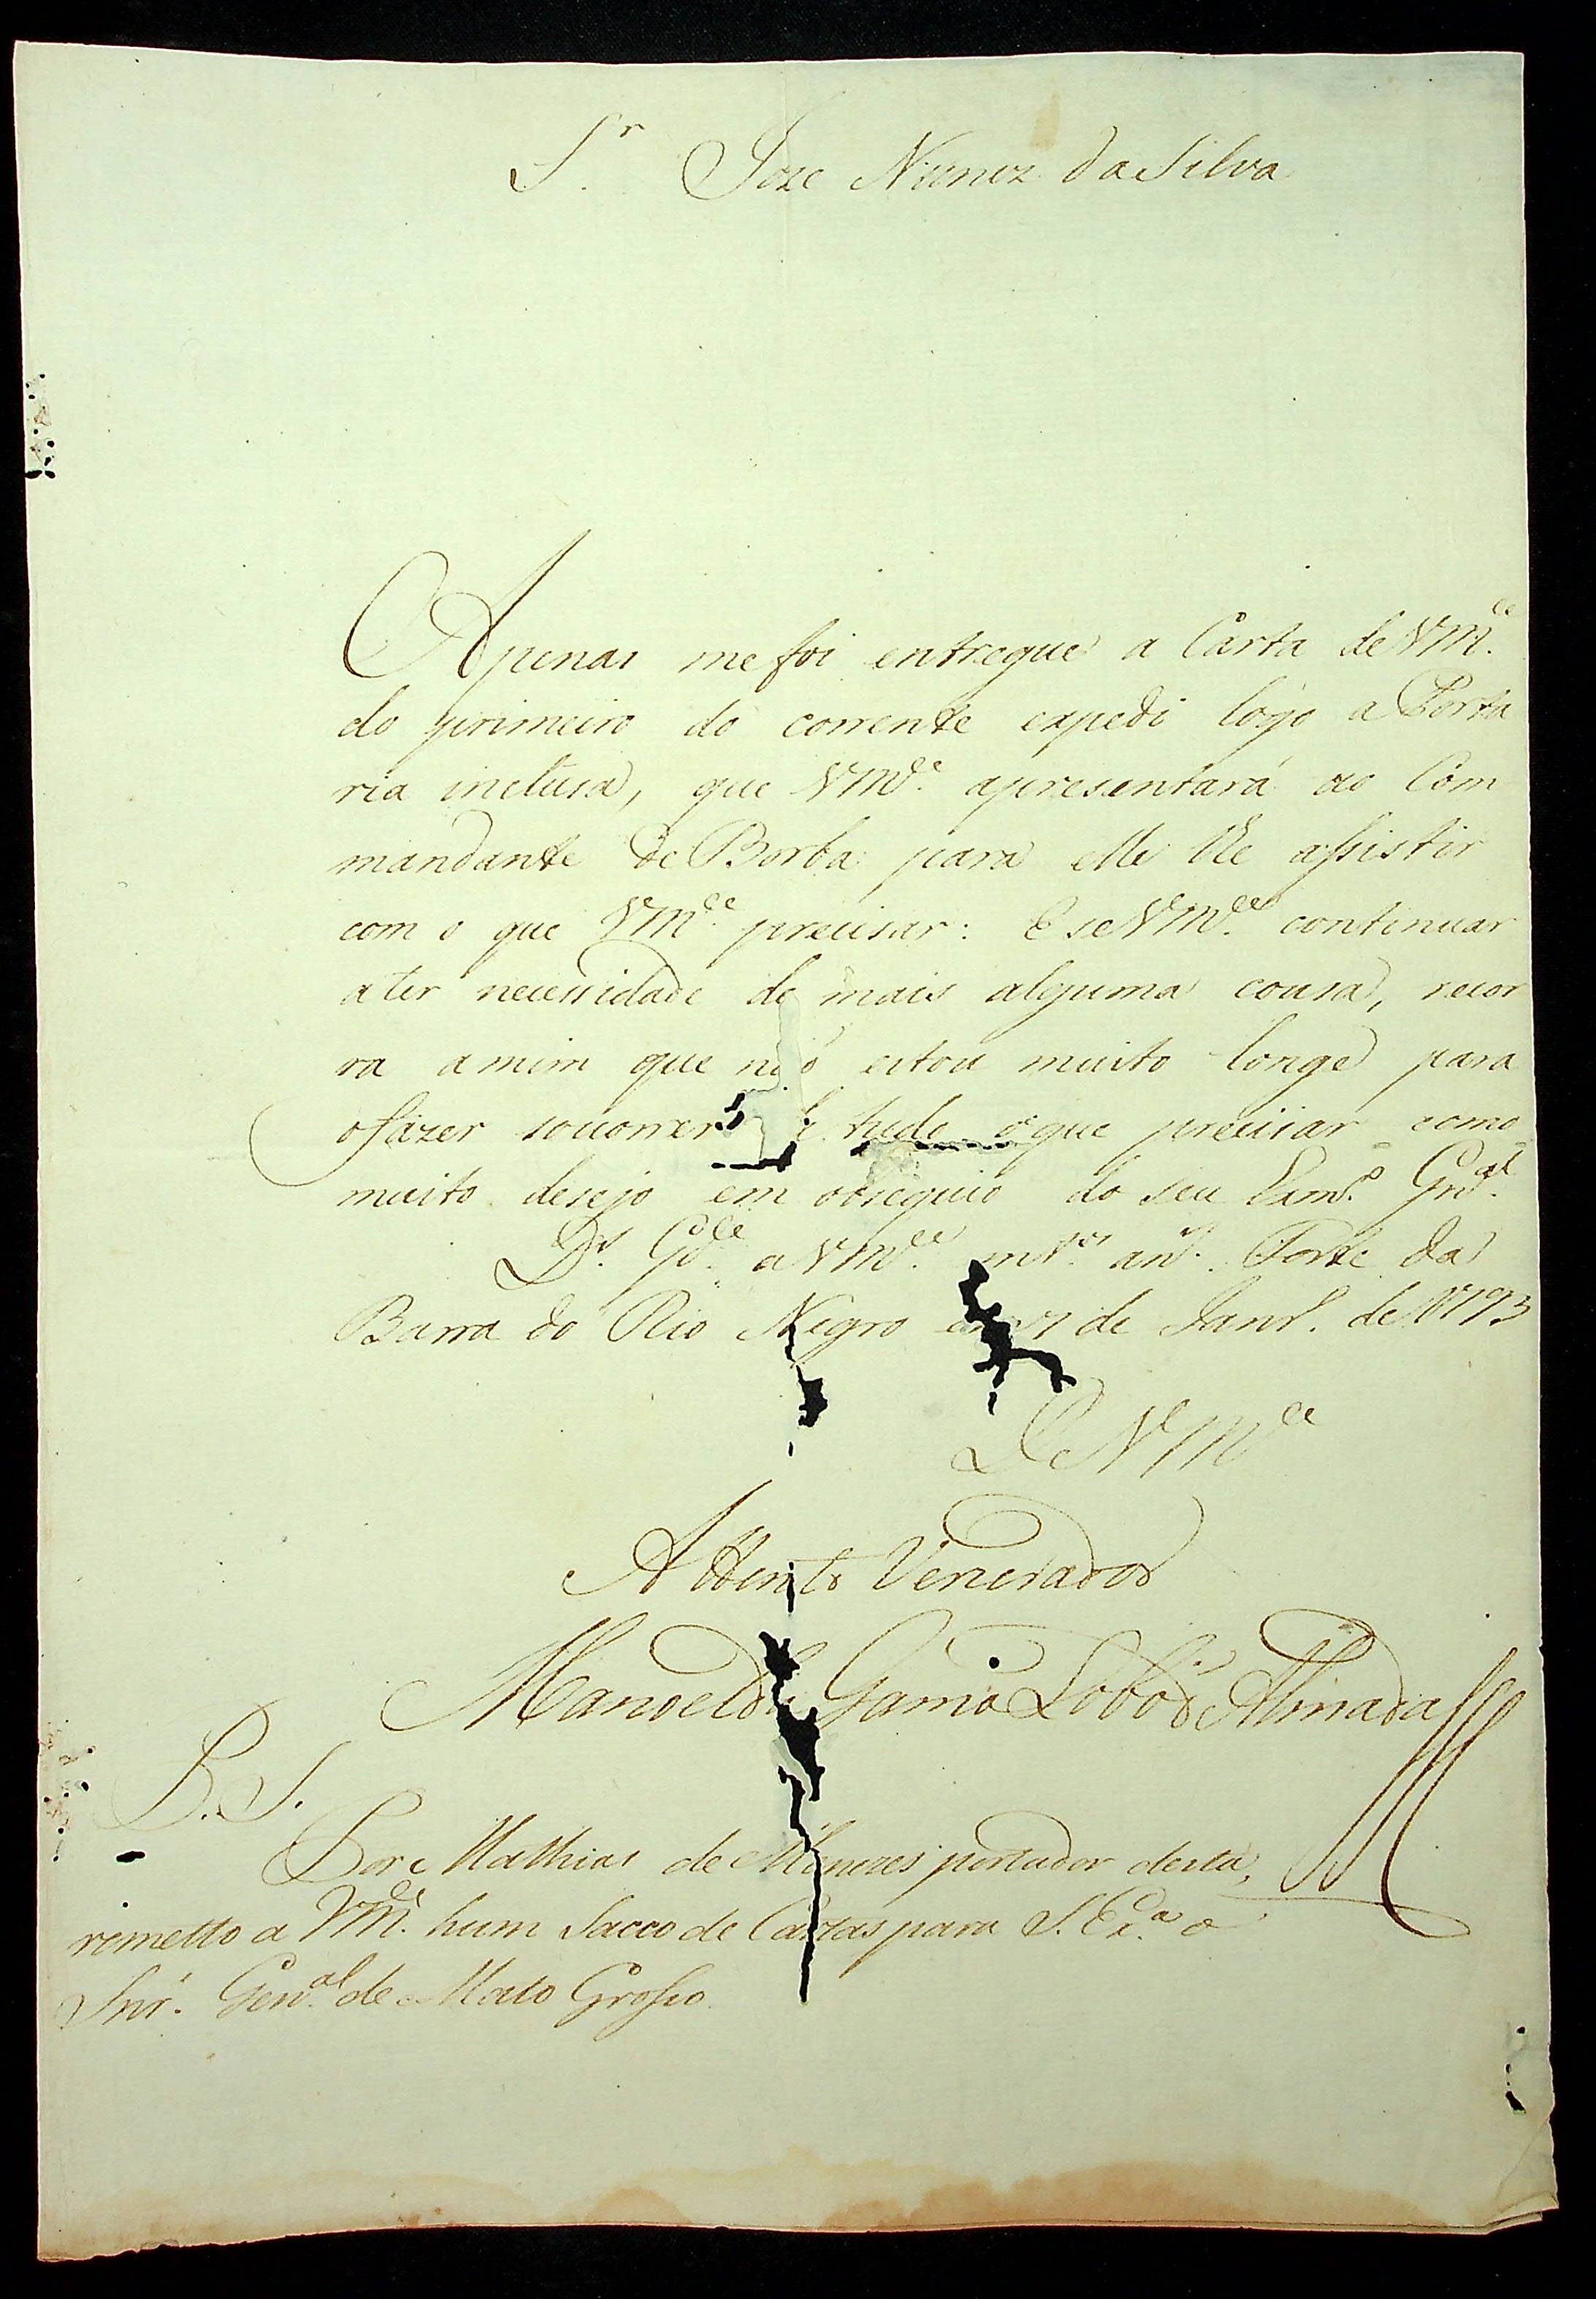 S.r Joze Nunez da Silva
Apenas me foi entregue a Carta de VM.ce
do primeiro do corrente expedi lógo a Porta
ria inclusa, que VM.ce apresentará ao Com
mandante de Borba para elle lhe assistir
com o que VM.ce precisar: E se VM.ce continuar
a ter necessidade de mais alguma cousa, recor
ra a mim que não estou muito longe para
o fazer soccorrer de tudo o que precisar como
muito desejo em obsequio do seu Exm.o Gn.al
D.s G.de a VM.ce m.tos an.s. Forte da
Barra do Rio Negro de Janr.o de 1793
De VM.ce
Attento Venerador
Manoel da Gama Lobo d'Almada
P. S.
Por Mathias de Menezes portador desta,
remetto a VM.ce hum Sacco de Cartas para S. Ex.a o
Snr. Gen.al de Mato Grosso.